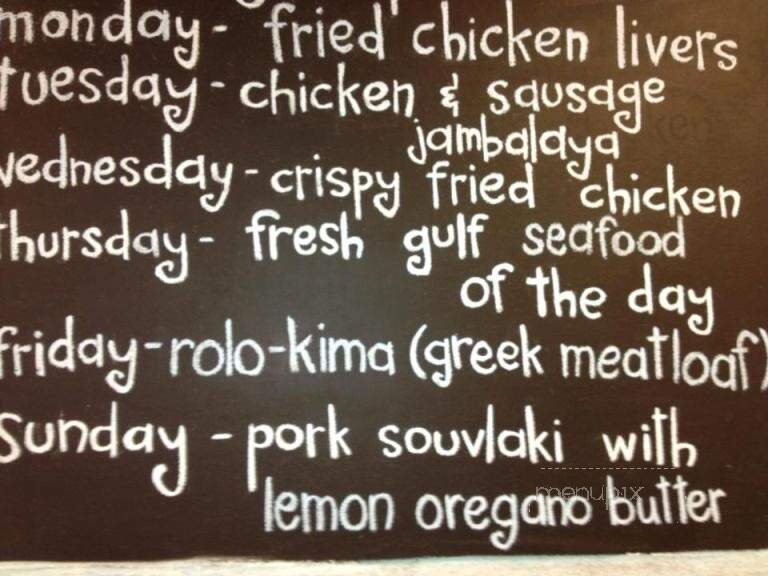 monday - fried chicken livers
tuesday - chicken & sausage
jambalaya
wednesday - crispy fried chicken
thursday - fresh gulf seafood
of the day
friday - rolo-kima (greek meatloaf)
sunday - pork souvlaki with
menupix
lemon oregano butter